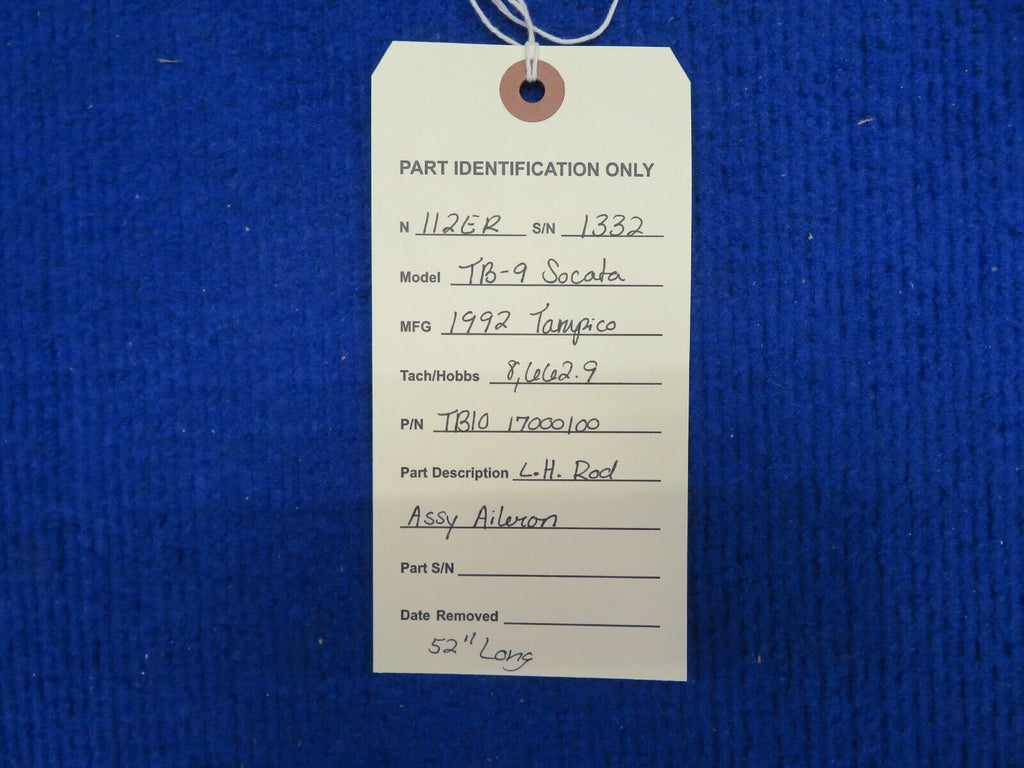 PART IDENTIFICATION ONLY
N 112ER S/N 1332
Model TB-9 Socata
MFG 1992 Tampico
Tach/Hobbs 8,662.9
P/N TB10 17000100
Part Description L.H. Rod
Assy Aileron
Part S/N
Date Removed
52" Long